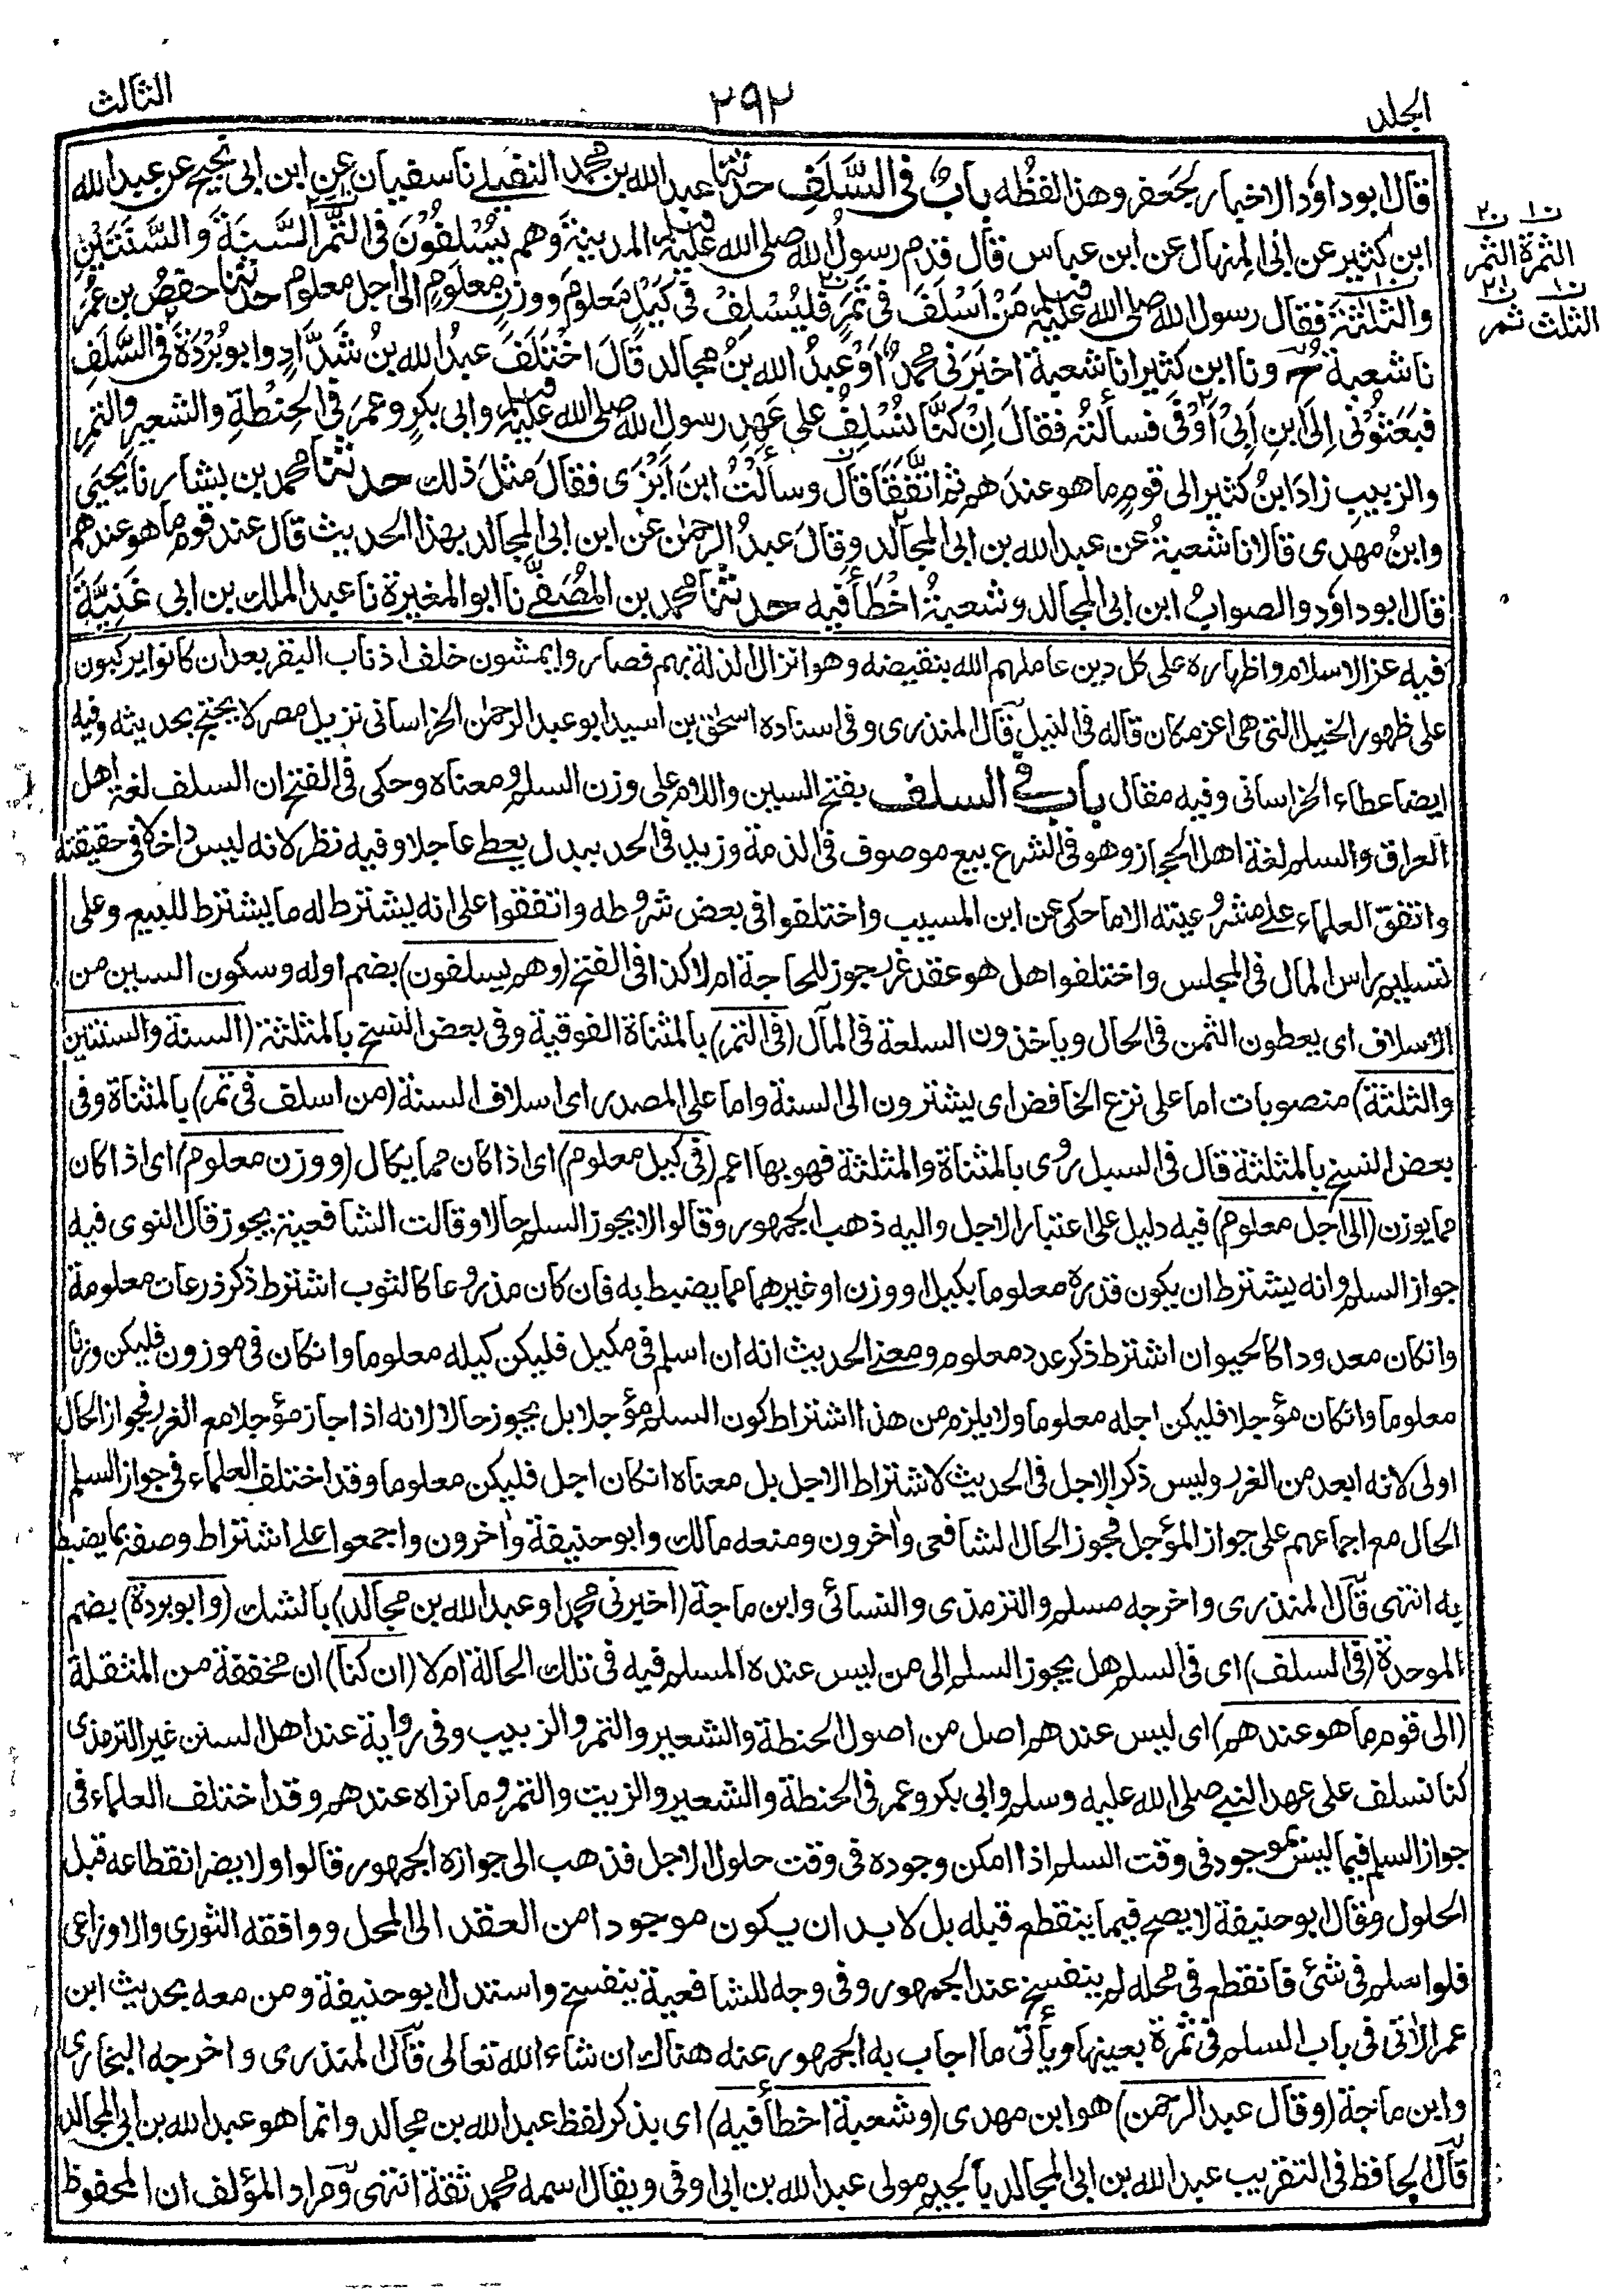 الجلد
٢٩٢
الثالث
قال ابوداؤد الاخبار لجعفر وهذا لفظه باب فى السَّلَفِ حدثنا عبد الله بن محمد النفيلے نا سفيان عن ابن ابى نجيح عن عبد الله
ابن كثير عن ابى المنهال عن ابن عباس قال قدم رسول الله صلى الله عليه وسلم المدينة وهم يُسْلِفُوْنَ فى التَّمْرِ السَّنَةَ والسَّنَتَيْنِ
والثلثة فقال رسول الله صلى الله عليه وسلم مَنْ اَسْلَفَ فى تَمَرٍ فَلْيُسْلِفْ فى كَيْلٍ مَعلومٍ ووزنٍ معلومٍ الى اجل معلوم حدثنا حفصُ بن عُمَرَ
نا شعبة ح ونا ابن كثير انا شعبة اخبرنى محمدٌ اَوْ عبدُ الله بنُ مجالد قَالَ اخْتَلَفَ عبدُ الله بنُ شَدَّادٍ وابو بُرْدَةَ فى السَّلَفِ
فبَعَثُوْنِى اِلَى ابنِ اَبِىْ اَوْفَى فسألتُه فقالَ اِنْ كنَّا نُسْلِفُ على عَهدِ رسول الله صلى الله عليه وسلم وابى بكرٍ وعمرَ فى الحِنْطةِ والشعيرِ والتمرِ
والزبيبِ زادَ ابنُ كثير الى قومٍ ما هو عندَهم ثم اتَّفَقَا قال وسألتُ ابنَ اَبْزٰى فقالَ مثلَ ذلك حدثنا محمد بن بشار نا يحيى
وابنُ مهدى قالا نا شعبةُ عن عبد الله بن ابى المجالد وقالَ عبدُ الرحمٰن عن ابن ابى المجالد بهذا الحديث قال عند قوم ما هو عندهم
قال ابوداؤد والصوابُ ابن ابى المجالد وشعبةُ اخْطَأَ فيه حدثنا محمد بن المُصَفّٰى نا ابو المغيرة نا عبد الملك بن ابى غَنِيَّةَ
ن١ ن٢
الثمرة الثمر
ن١ ن٢
الثلث ثمر
فيه عز الاسلام واظهاره على كل دين عاملهم الله بنقيضه وهو انزال الذلة بهم فصاروا يمشون خلف اذناب البقر بعدان كانوا يركبون
على ظهور الخيل التى هى اعز مكان قاله فى النيل قال المنذرى وفى اسناده اسحٰق بن اسيد ابو عبد الرحمٰن الخراسانى نزيل مصر لا يحتج بحديثه وفيه
ايضا عطاء الخراسانى وفيه مقال باب فى السلف بفتح السين واللام على وزن السلم ومعناه وحكى فى الفتح ان السلف لغة اهل
العراق والسلم لغة اهل الحجاز وهو فى الشرع بيع موصوف فى الذمة وزيد فى الحد ببدل يعطے عاجلا وفيه نظر لانه ليس داخلا فى حقيقته
واتفق العلماء علے مشروعيته الا ما حكى عن ابن المسيب واختلفوا فى بعض شروطه واتفقوا على انه يشترط له ما يشترط للبيع وعلى
تسليم راس المال فى المجلس واختلفوا هل هو عقد غرر جوز للحاجة ام لا كذا فى الفتح (وهم يسلفون) بضم اوله وسكون السين من
الاسلاف اى يعطون الثمن فى الحال وياخذون السلعة فى المآل (فى التمر) بالمثناة الفوقية وفى بعض النسخ بالمثلثة (السنة والسنتين
والثلثة) منصوبات اما على نزع الخافض اى يشترون الى السنة واما على المصدر اى اسلاف السنة (من اسلف فى تمر) بالمثناة وفى
بعض النسخ بالمثلثة قال فى السبل روى بالمثناة والمثلثة فهو بها اعم (فى كيل معلوم) اى اذا كان مما يكال (ووزن معلوم) اى اذا كان
مما يوزن (الى اجل معلوم) فيه دليل على اعتبار الاجل واليه ذهب الجمهور وقالوا لا يجوز السلم حالا وقالت الشافعية يجوز قال النووى فيه
جواز السلم وانه يشترط ان يكون قدره معلوما بكيل او وزن او غيرهما مما يضبط به فان كان مذروعا كالثوب اشترط ذكر ذرعات معلومة
وانكان معدودا كالحيوان اشترط ذكر عدد معلوم ومعنے الحديث انه ان اسلم فى مكيل فليكن كيله معلوما وانكان فى موزون فليكن وزنا
معلوما وانكان مؤجلا فليكن اجله معلوما ولا يلزم من هذا اشتراط كون السلم مؤجلا بل يجوز حالا لانه اذا جاز مؤجلا مع الغرر فجواز الحال
اولى لانه ابعد من الغرر وليس ذكر الاجل فى الحديث لاشتراط الاجل بل معناه انكان اجل فليكن معلوما وقد اختلف العلماء فى جواز السلم
الحال مع اجماعهم على جواز المؤجل فجوز الحال الشافعى وآخرون ومنعه مالك وابو حنيفة وآخرون واجمعوا علے اشتراط وصفه بما يضبط
به انتهى قال المنذرى واخرجه مسلم والترمذى والنسائى وابن ماجة (اخبرنى محمد او عبد الله بن مجالد) بالشك (وابو بردة) بضم
الموحدة (فى السلف) اى فى السلم هل يجوز السلم الى من ليس عنده المسلم فيه فى تلك الحالة ام لا (ان كنا) ان مخففة من المثقلة
(الى قوم ما هو عندهم) اى ليس عندهم اصل من اصول الحنطة والشعير والتمر والزبيب وفى رواية عند اهل السنن غير الترمذى
كنا نسلف على عهد النبے صلى الله عليه وسلم وابى بكر وعمر فى الحنطة والشعير والزيت والتمر وما نراه عندهم وقد اختلف العلماء فى
جواز السلم فيما ليس بموجود فى وقت السلم اذا امكن وجوده فى وقت حلول الاجل فذهب الى جوازه الجمهور قالوا ولا يضر انقطاعه قبل
الحلول وقال ابو حنيفة لا يصح فيما ينقطع قبله بل لا بد ان يكون موجودا من العقد الى المحل ووافقه الثورى والاوزاعى
فلو اسلم فى شئ فانقطع فى محله لم ينفسخ عند الجمهور وفى وجه للشافعية ينفسخ واستدل ابو حنيفة ومن معه بحديث ابن
عمر الآتى فى باب السلم فى ثمرة بعينها ويأتى ما اجاب به الجمهور عنه هناك ان شاء الله تعالى قال المنذرى واخرجه البخارى
وابن ماجة (وقال عبد الرحمن) هو ابن مهدى (وشعبة اخطأ فيه) اى بذكر لفظ عبد الله بن مجالد وانما هو عبد الله بن ابى المجالد
قال الحافظ فى التقريب عبد الله بن ابى المجالد بالجيم مولى عبد الله بن ابى اوفى ويقال اسمه محمد ثقة انتهى ومراد المؤلف ان المحفوظ